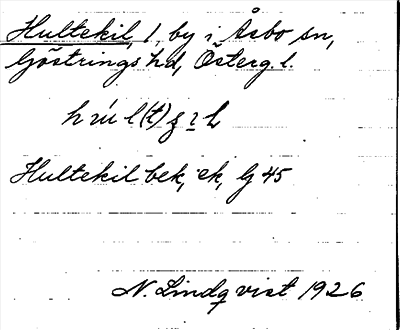 Hultekil, 1, by i Åsbo sn,
Göstrings hd, Österg l.
Hultekil bek, ek, Lg 45
N. Lindqvist 1926